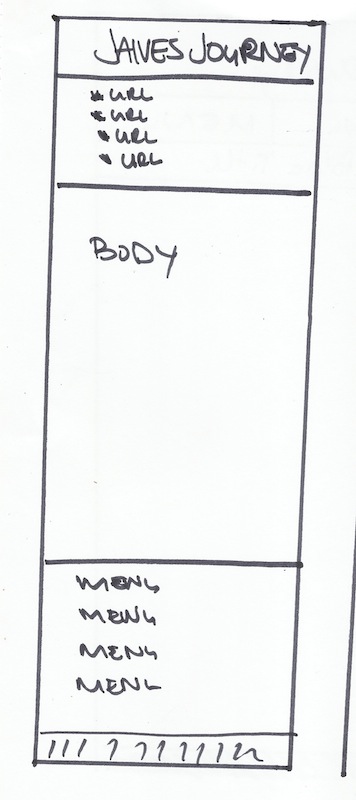 JAIVES JOURNEY
* URL
* URL
* URL
* URL
BODY
MENU
MENU
MENU
MENU